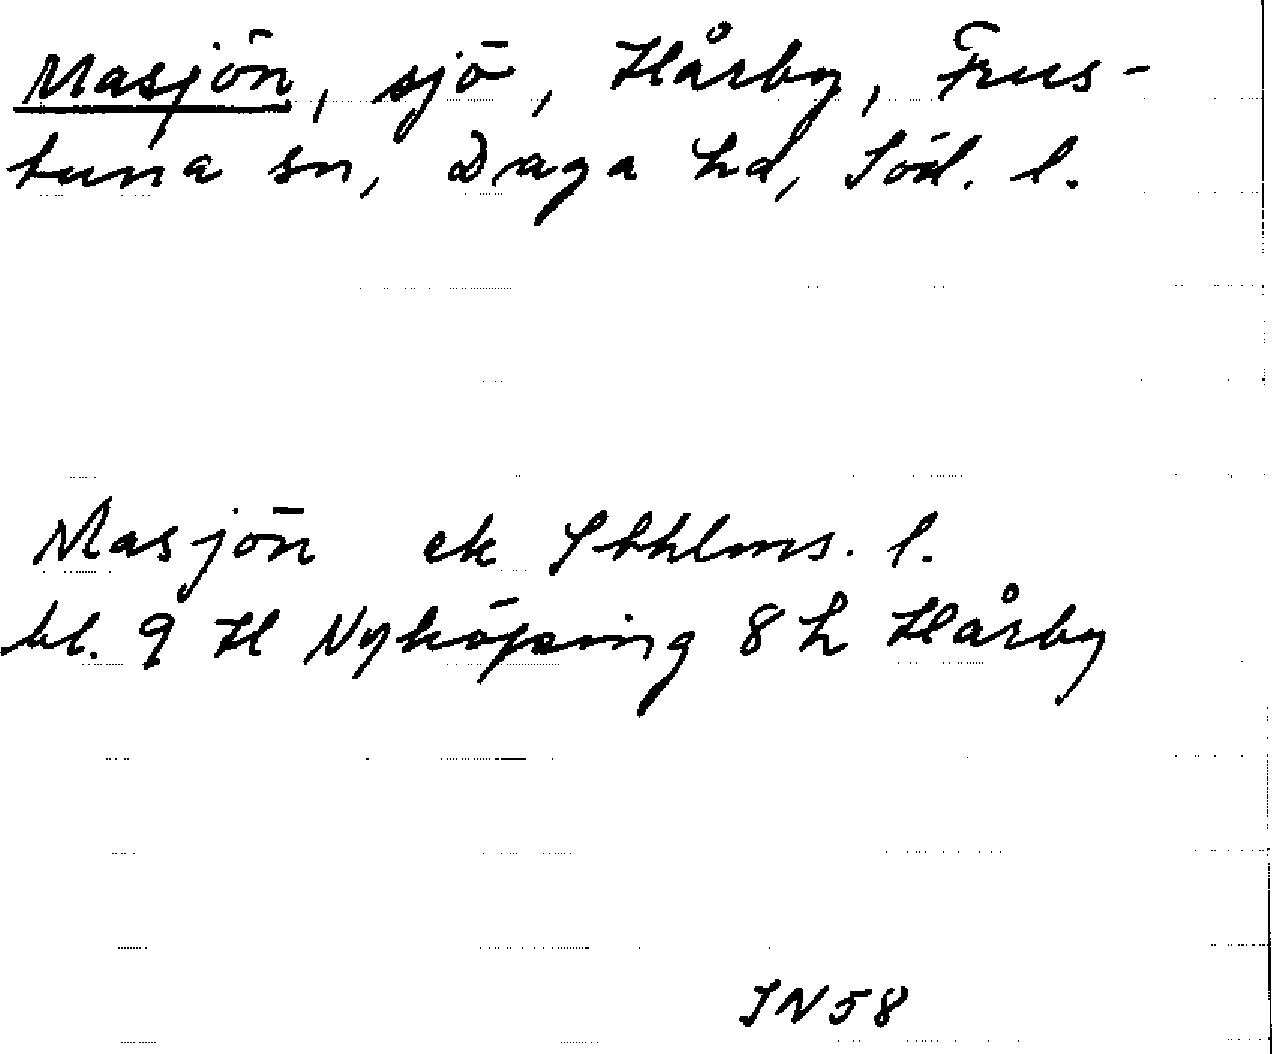 Masjön, sjö, Hårby, Frus-
tuna sn, Daga hd, Söd. l.
Masjön ek Sthlms. l.
bl. 9 H Nyköping 8 h Hårby
IN58